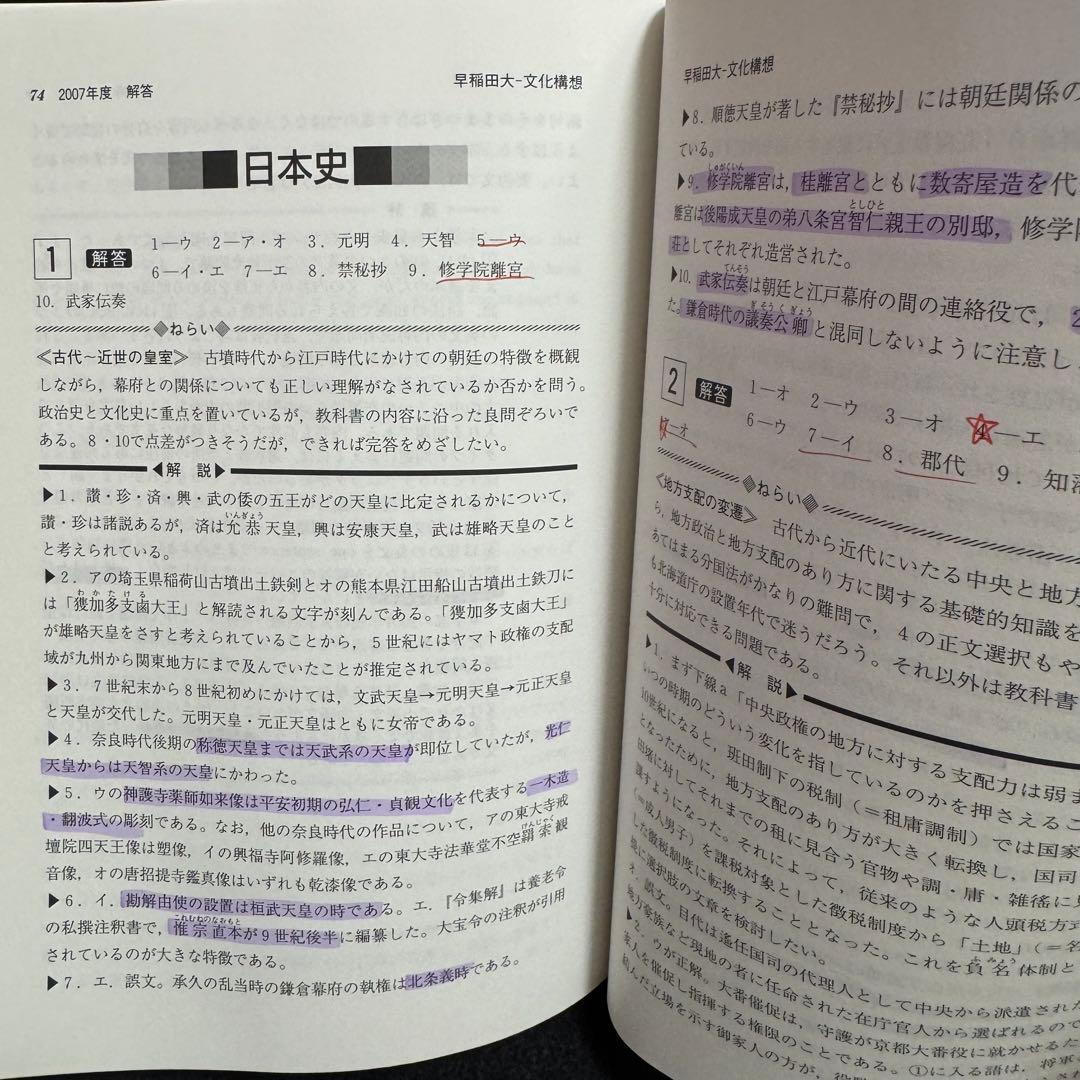 74 2007年度 解答
早稲田大-文化構想
日本史
1 解答 1―ウ 2―ア・オ 3．元明 4．天智 5―ウ
6―イ・エ 7―エ 8．禁秘抄 9．修学院離宮
10．武家伝奏
ねらい
≪古代～近世の皇室≫ 古墳時代から江戸時代にかけての朝廷の特徴を概観
しながら，幕府との関係についても正しい理解がなされているか否かを問う。
政治史と文化史に重点を置いているが，教科書の内容に沿った良問ぞろいで
ある。8・10で点差がつきそうだが，できれば完答をめざしたい。
◀解 説▶
▶1．讃・珍・済・興・武の倭の五王がどの天皇に比定されるかについて，
讃・珍は諸説あるが，済は允恭天皇，興は安康天皇，武は雄略天皇のこと
いんぎょう
と考えられている。
▶2．アの埼玉県稲荷山古墳出土鉄剣とオの熊本県江田船山古墳出土鉄刀に
わかたける
は「獲加多支鹵大王」と解読される文字が刻んである。「獲加多支鹵大王」
が雄略天皇をさすと考えられていることから，5世紀にはヤマト政権の支配
域が九州から関東地方にまで及んでいたことが推定されている。
▶3．7世紀末から8世紀初めにかけては，文武天皇→元明天皇→元正天皇
と天皇が交代した。元明天皇・元正天皇はともに女帝である。
▶4．奈良時代後期の称徳天皇までは天武系の天皇が即位していたが，光仁
天皇からは天智系の天皇にかわった。
▶5．ウの神護寺薬師如来像は平安初期の弘仁・貞観文化を代表する一木造
・翻波式の彫刻である。なお，他の奈良時代の作品について，アの東大寺戒
壇院四天王像は塑像，イの興福寺阿修羅像，エの東大寺法華堂不空羂索観
けんじゃく
音像，オの唐招提寺鑑真像はいずれも乾漆像である。
▶6．イ．勘解由使の設置は桓武天皇の時である。エ．『令集解』は養老令
これむねのなおもと
の私撰注釈書で，惟宗直本が9世紀後半に編纂した。大宝令の注釈が引用
されているのが大きな特徴である。
▶7．エ．誤文。承久の乱当時の鎌倉幕府の執権は北条義時である。
早稲田大-文化構想
▶8．順徳天皇が著した『禁秘抄』には朝廷関係の
ている。
しゅがくいん
▶9．修学院離宮は，桂離宮とともに数寄屋造を代
としひと
離宮は後陽成天皇の弟八条宮智仁親王の別邸，修学
荘としてそれぞれ造営された。
てんそう
▶10．武家伝奏は朝廷と江戸幕府の間の連絡役で，2
ぎそうくぎょう
た。鎌倉時代の議奏公卿と混同しないように注意し
2 解答 1―オ 2―ウ 3―オ 4―エ
―オ 6―ウ 7―イ 8．郡代 9．知
ねらい
≪地方支配の変遷≫ 古代から近代にいたる中央と地方
ら，地方政治と地方支配のあり方に関する基礎的知識を
あてはまる分国法がかなりの難問で，4の正文選択もや
も北海道庁の設置年代で迷うだろう。それ以外は教科書
十分に対応できる問題である。
◀解 説▶
▶1．まず下線a「中央政権の地方に対する支配力は弱ま
いつの時期のどういう変化を指しているのかを押さえるこ
10世紀になると，班田制下の税制（＝租庸調制）では国家
となったために，地方支配のあり方が大きく転換し，国司
田堵に対してそれまでの租に見合う官物や調・庸・雑徭に見
課すようになった。それによって，従来のような人頭税方式
（＝成人男子）を課税対象とした徴税制度から「土地」（＝名
した徴税制度に転換することとなった。これを負名体制と
ふみょう
提に選択肢の文章を検討したい。
オ．誤文。目代は遙任国司の代理人として中央から派遣された
地方豪族など現地の者に任命された在庁官人から選ばれるので
▶2．ウが正解。大番催促は，守護が京都大番役に就かせるた
家人を催促し指揮する権限のことである。①に入る語は，将軍
組んだ立場を示す御家人の方が，